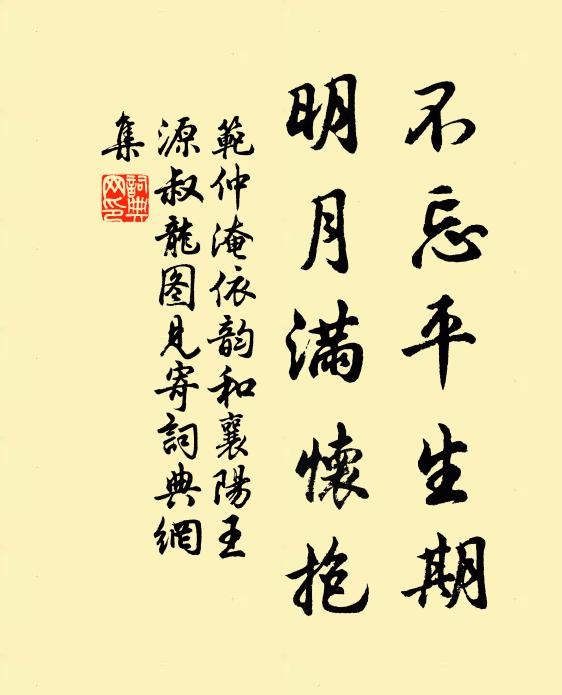 不忘平生期
明月满懷抱
範仲淹依韵和襄陽王
源叔龍图見寄詞典網
集
詞典
网印